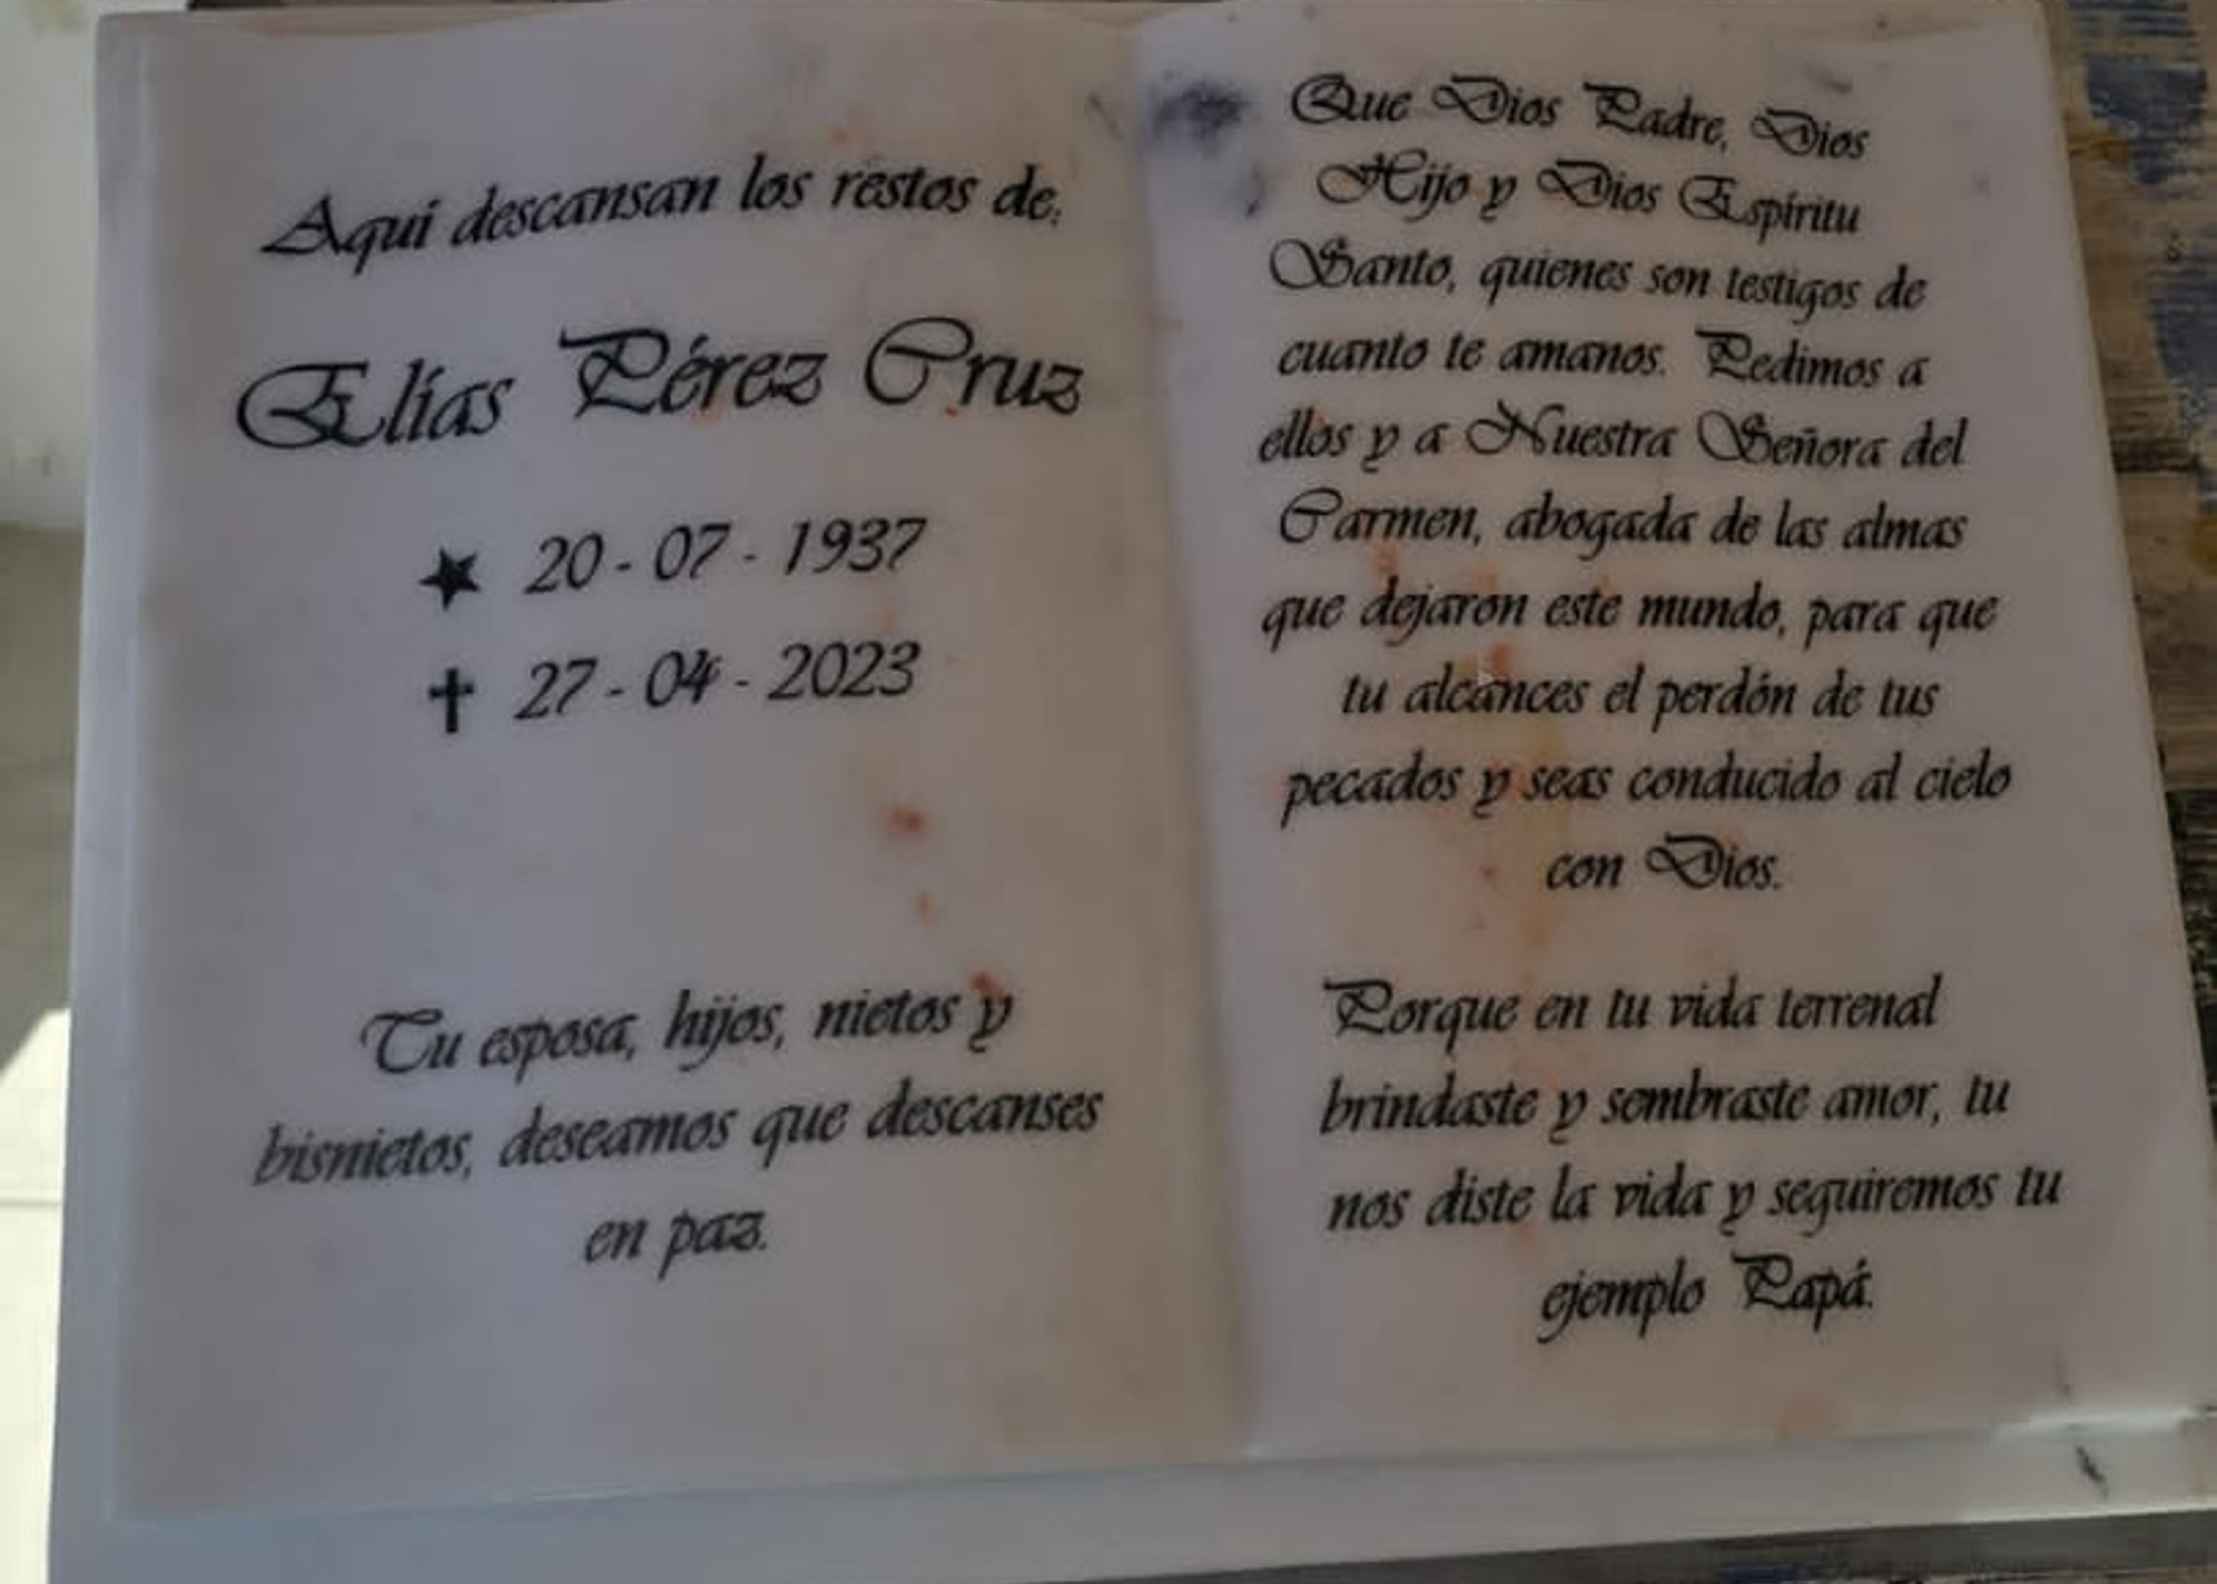 Aquí descansan los restos de:
Elías Pérez Cruz
20 - 07 - 1937
27 - 04 - 2023
Tu esposa, hijos, nietos y
bisnietos, deseamos que descanses
en paz.
Que Dios Padre, Dios
Hijo y Dios Espíritu
Santo, quienes son testigos de
cuanto te amanos. Pedimos a
ellos y a Nuestra Señora del
Carmen, abogada de las almas
que dejaron este mundo, para que
tu alcances el perdón de tus
pecados y seas conducido al cielo
con Dios.
Porque en tu vida terrenal
brindaste y sembraste amor, tu
nos diste la vida y seguiremos tu
ejemplo Papá.